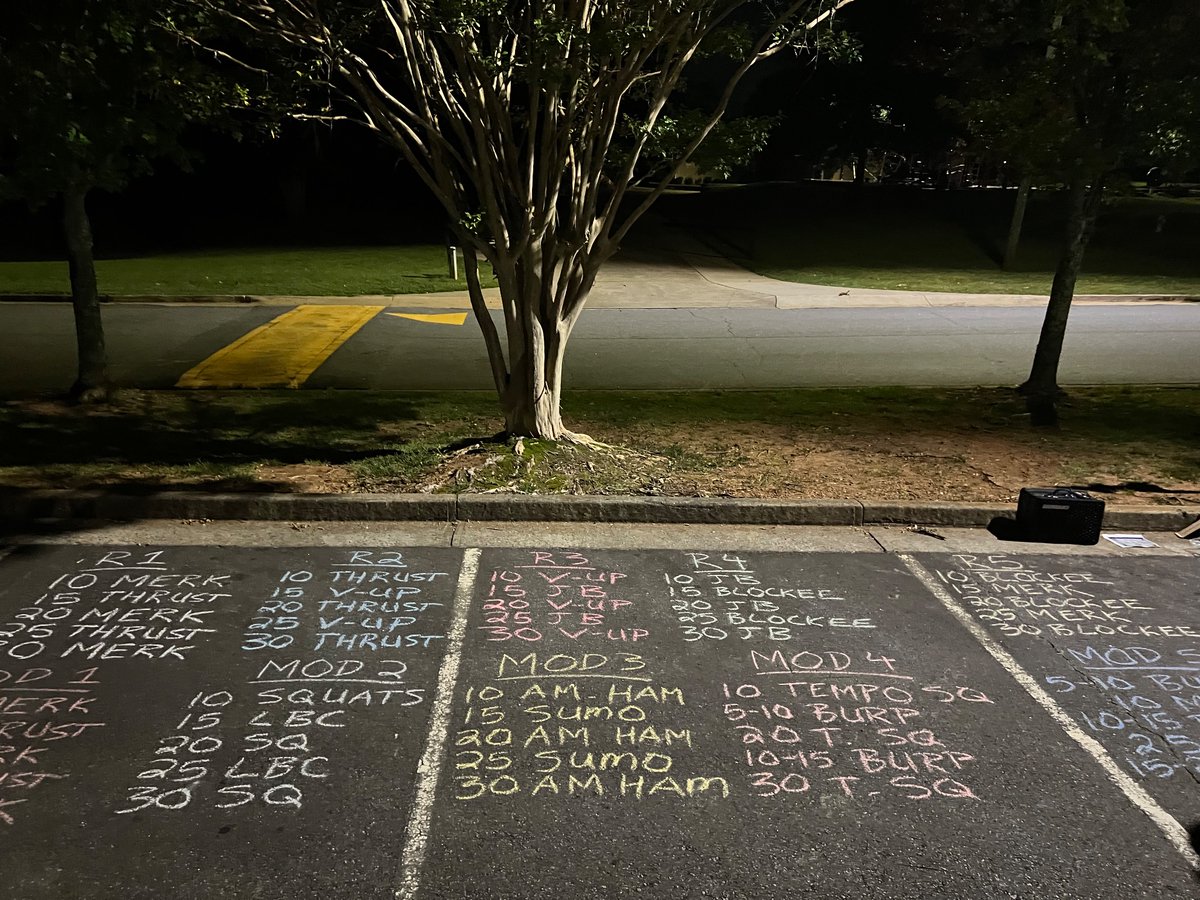 R1
10 MERK
15 THRUST
20 MERK
25 THRUST
30 MERK
R2
10 THRUST
15 V-UP
20 THRUST
25 V-UP
30 THRUST
R3
10 V-UP
15 JB
20 V-UP
25 JB
30 V-UP
R4
10 JB
15 BLOCKEE
20 JB
25 BLOCKEE
30 JB
R5
10 BLOCKEE
15 MERK
20 BLOCKEE
25 MERK
30 BLOCKEE
OD 1
MERK
HRUST
RK
ST
MOD 2
10 SQUATS
15 LBC
20 SQ
25 LBC
30 SQ
MOD3
10 AM-HAM
15 SUMO
20 AM HAM
25 SUMO
30 AM HAM
MOD 4
10 TEMPO SQ
5-10 BURP
20 T. SQ
10-15 BURP
30 T. SQ
MOD 5
5-10 BU
10 M
10-15
25
15